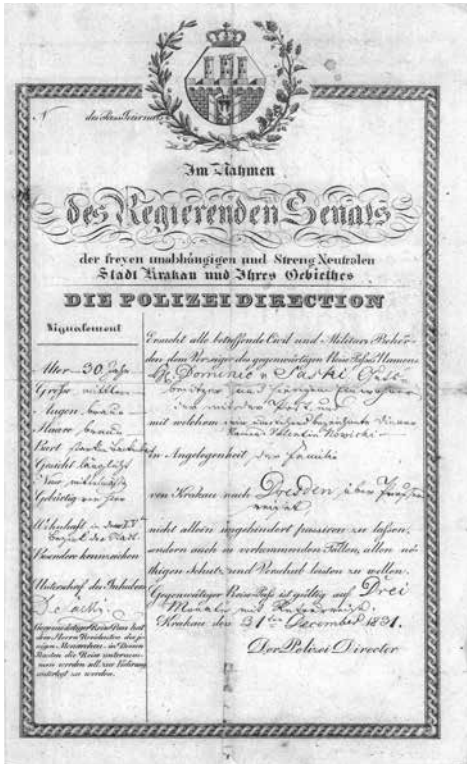 N
des Pass Journals
Im Nahmen
des Regierenden Senats
der freyen unabhängigen und Streng Neutralen
Stadt Krakau und Ihres Gebiethes
DIE POLIZEIDIRECTION
Signalement
Alter 30 Jahr
Größe mittlere
Augen braun
Haare braun
Bart
Gesicht länglicht
Nase mittelmäßig
Gebürtig von hier
Wohnhaft in der IV
Besondere kennzeichen
Unterschrift des Inhabers
D. Saski
Gegenwärtiger Reise Pass hat
dem Herrn Residenten
jenigen Monarchen, in Dessen
Staaten die Reise unternom-
men werden soll, zur Vidirung
vorlegt zu werden.
Ersucht alle betreffende Civil und Militair Behör-
den dem Vorzeiger des gegenwärtigen Reise Passes Namens
Dominic v Saski Guts-
besitzer und hiesigen Einwohner
der mit der Post und
mit welchem sein umstehend bezeichneter Diener
Namens Valentin Nowicki
in Angelegenheit der Familie
von Krakau nach Dresden über
nicht allein ungehindert passiren zu lassen,
sondern auch in vorkommenden Fällen, allen nö-
thigen Schutz und Vorschub leisten zu wollen.
Gegenwärtiger Reise Pass ist gültig auf Drei
Monate mit
Krakau den 31ten December 1831.
Der Polizei Director